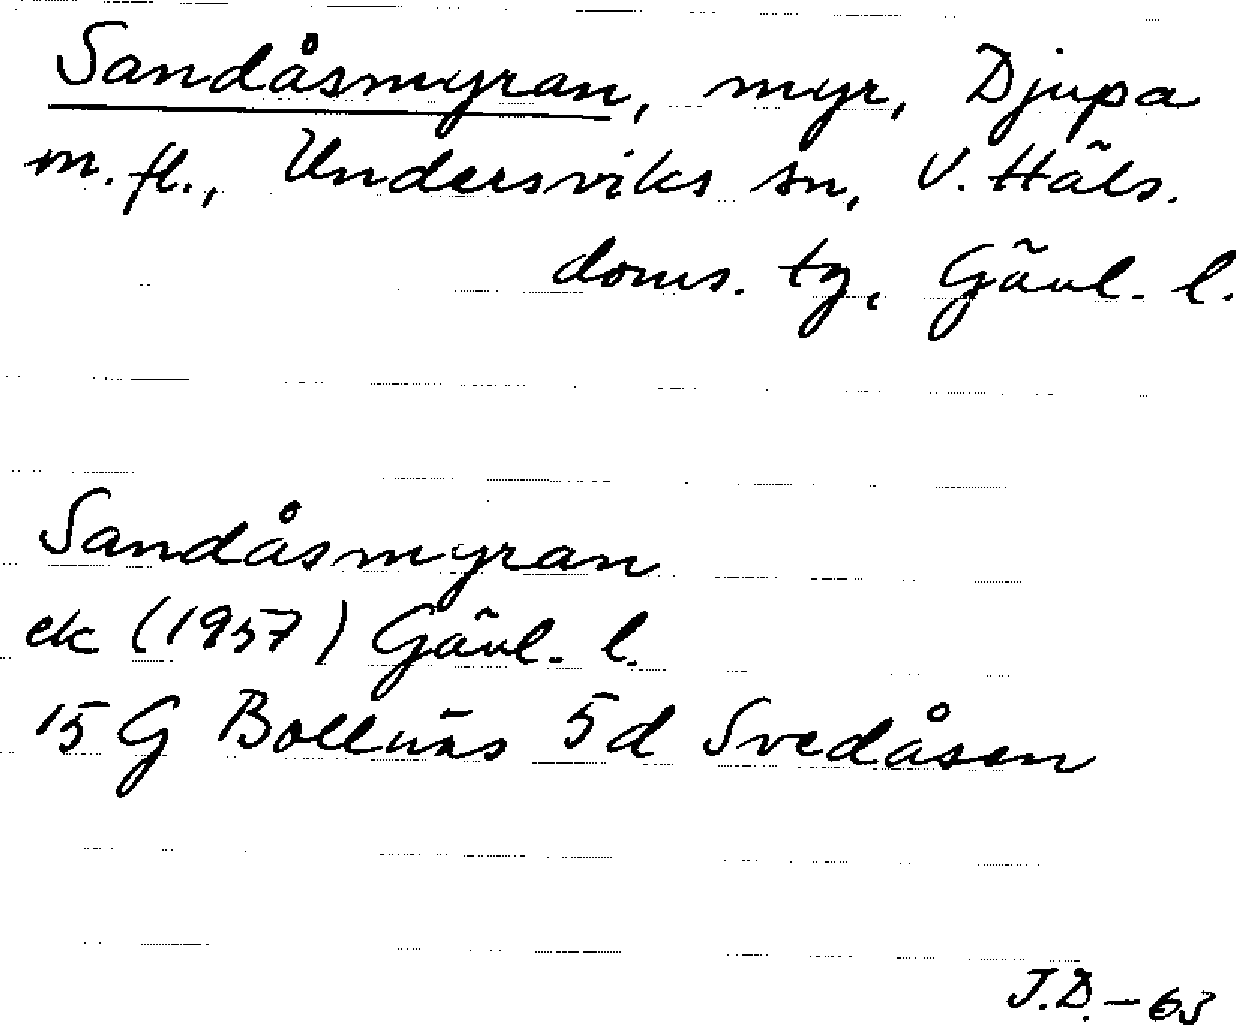 Sandåsmyran, myr, Djupa
m. fl., Undersviks sn, V. Häls.
doms. tg, Gävl. l.
Sandåsmyran
ek (1957) Gävl. l.
15 G Bollnäs 5d Svedåsen
J.D. - 63